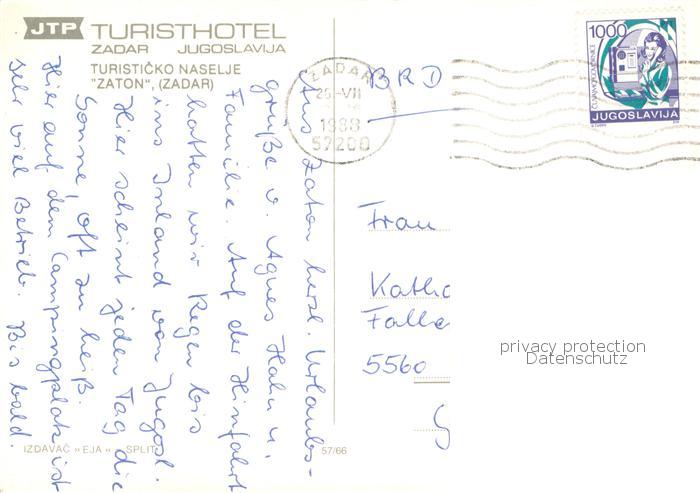 JTP TURISTHOTEL
ZADAR JUGOSLAVIJA
TURISTIČKO NASELJE
"ZATON", (ZADAR)
Aus Zaton herzl. Urlaubs-
grüße v. Agnes Hahn u.
Familie. Auf der Hinfahrt
hatten wir Regen bis
ins Inland von Jugosl.
Hier scheint jeden Tag die
Sonne, oft zu heiß.
Hier auf dem Campingplatz ist
sehr viel Betrieb. Bis bald.
IZDAVAČ »EJA« SPLIT
57/66
ZADAR
1988
57200
1000
JUGOSLAVIJA
BRD
Frau
Katha
Falle
5560
privacy protection
Datenschutz